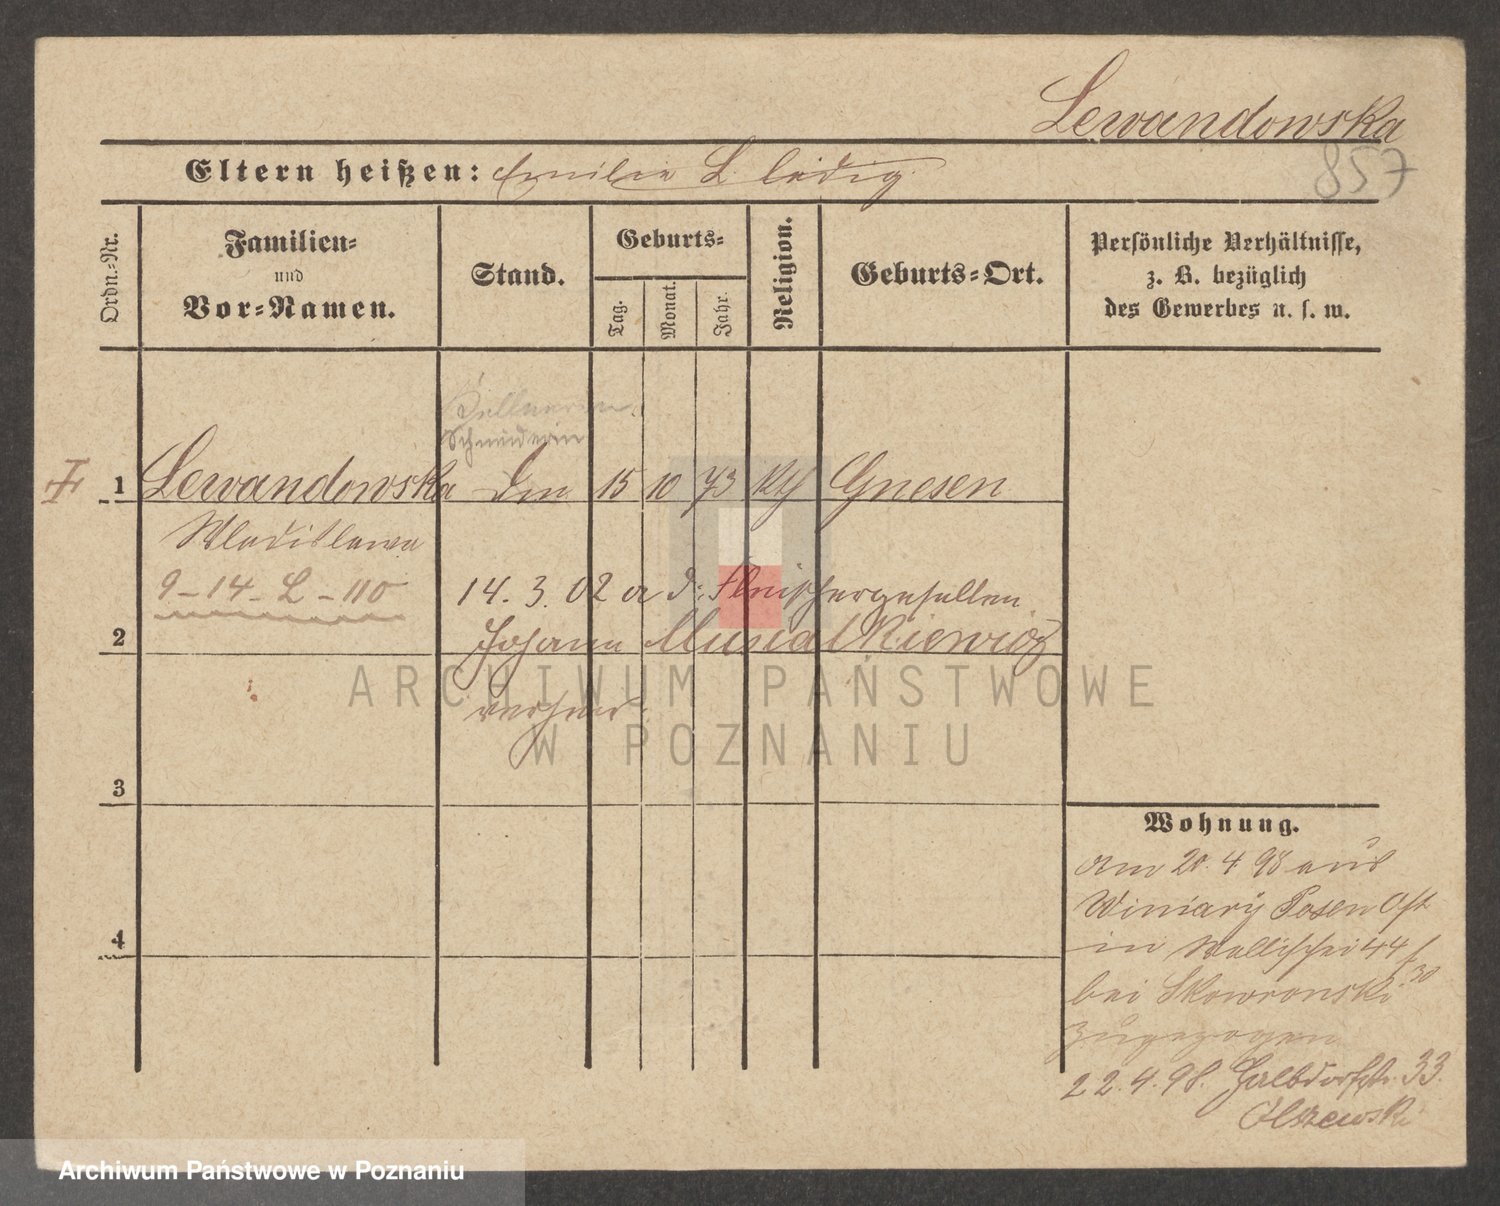 Lewandowska
857
Eltern heißen: Emilie L. ledig
Ordn.-Nr.
Familien-
und
Vor-Namen.
Stand.
Geburts-
Tag.
Monat.
Jahr.
Religion.
Geburts-Ort.
Persönliche Verhältnisse,
z. B. bezüglich
des Gewerbes u. s. w.
Kellnerin
Schneiderin
1 Lewandowska 15 10 73 Gnesen
Wladislawa
9-14-L-110
14. 3. 02 a d. Fleischergesellen
2 Johann Musialkiewicz
verheir.
3
4
Wohnung.
am 20. 4. 98 aus
Winiary Posen Ost
in Wallischei 44
bei Skowronski
zugezogen
22. 4. 98. Halbdorfstr. 33.
Olszewski
ARCHIWUM PAŃSTWOWE
W POZNANIU
Archiwum Państwowe w Poznaniu